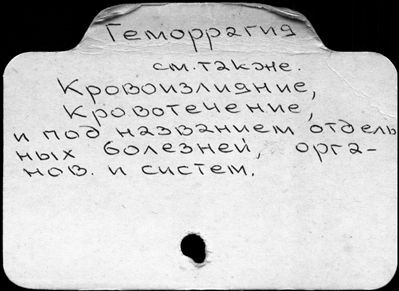 Геморрагия
см. также.
Кровоизлияние,
Кровотечение,
и под названием отдель
ных болезней, орга-
нов. и систем.